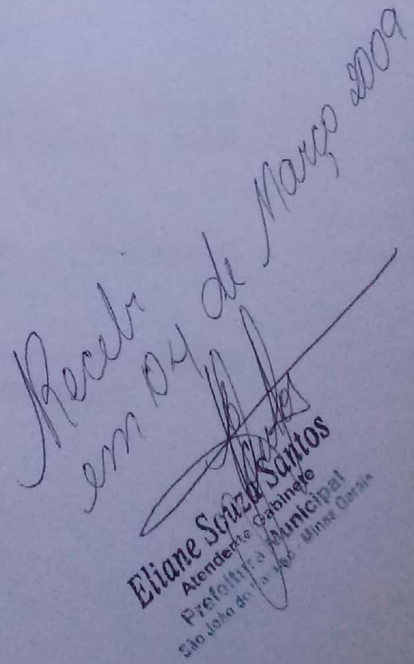 Recebi
em 04 de Março 2009
Eliane Souza Santos
Atendente Gabinete
Prefeitura Municipal
São João do - Minas Gerais